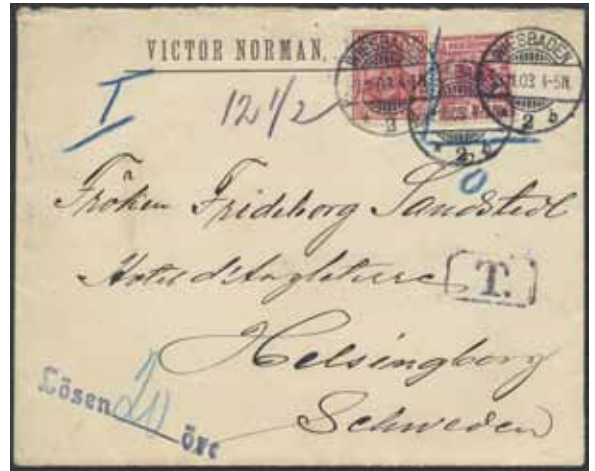 VICTOR NORMAN,
WIESBADEN
WIESBADEN
03 4-5N.
2 b
2 b
T
12 1/2
0
Fröken Frideborg Sandstedt
Hotel d'Angleterre
T.
Helsingborg
Schweden
Lösen 20 öre